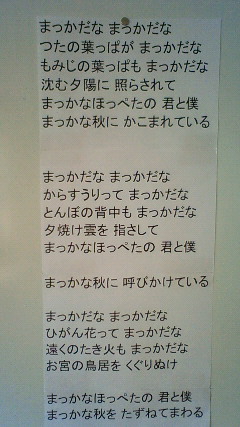 まっかだな まっかだな
つたの葉っぱが まっかだな
もみじの葉っぱも まっかだな
沈む夕陽に 照らされて
まっかなほっぺたの 君と僕
まっかな秋に かこまれている
まっかだな まっかだな
からすうりって まっかだな
とんぼの背中も まっかだな
夕焼け雲を 指さして
まっかなほっぺたの 君と僕
まっかな秋に 呼びかけている
まっかだな まっかだな
ひがん花って まっかだな
遠くのたき火も まっかだな
お宮の鳥居を くぐりぬけ
まっかなほっぺたの 君と僕
まっかな秋を たずねてまわる